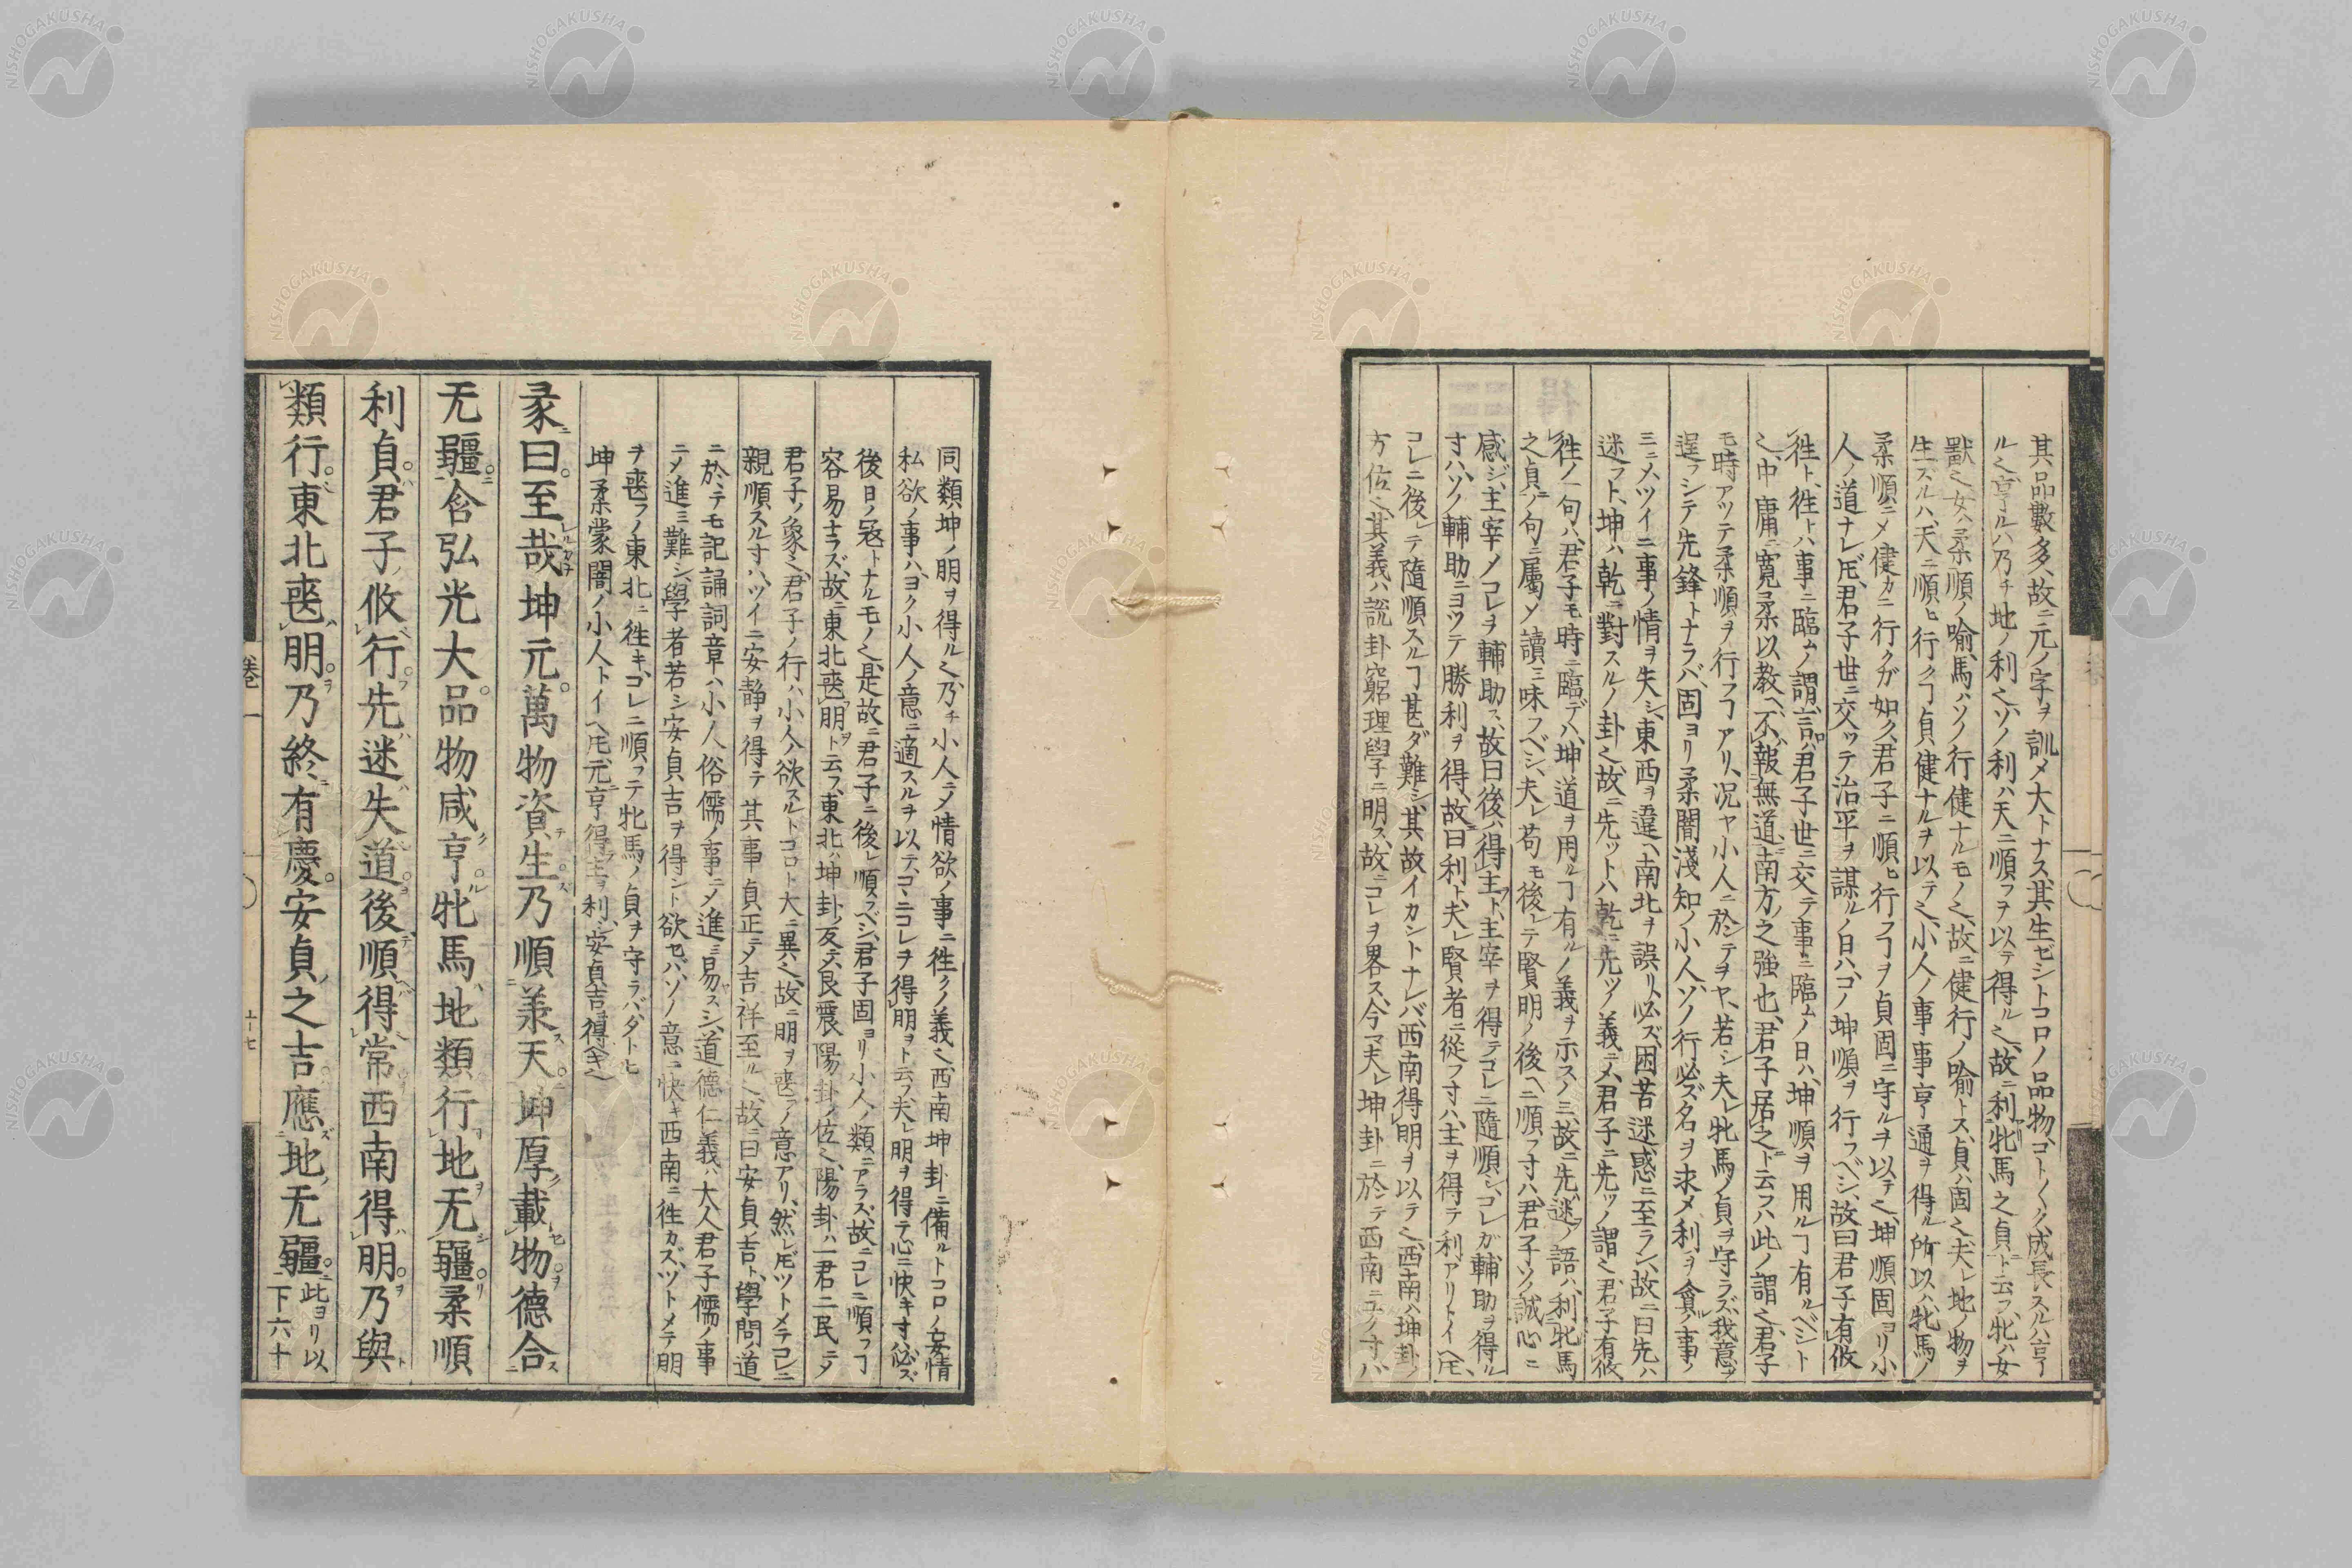 其品數多、故ニ元ノ字ヲ訓メ大トナス其生ゼシトコロノ品物、ゴト〱ク成長スルハ亨
ル也、亨ルハ乃チ地ノ利也、ソノ利ハ天ニ順フヲ以テ得ル也、故ニ利牝馬之貞ト云フ、牝ハ女
獸也、女ハ柔順ノ喻、馬ハソノ行健ナルモノ也、故ニ健行ノ喻トス、貞ハ固也、夫レ地ノ物ヲ
生ズルハ、天ニ順ヒ行クヿ貞健ナルヲ以テ也、小人ノ事事亨通ヲ得ル所以ハ、牝馬ノ
柔順ニメ健カニ行クガ如ク、君子ニ順ヒ行フヿヲ貞固ニ守ルヲ以テ也、坤順固ヨリ小
人ノ道ナレ𪜈、君子世ニ交ッテ治平ヲ謀ルノ日ハ、コノ坤順ヲ行フベシ、故曰君子有攸
徃ト、徃トハ事ニ臨ムノ謂、言ハ君子世ニ交テ事ニ臨ムノ日ハ、坤順ヲ用ルヿ有ルベシト
也、中庸ニ寬柔以教ヘ、不報無道、南方之強也、君子居之ト云フハ此ノ謂也、君子
モ時アツテ柔順ヲ行フヿアリ、况ヤ小人ニ於テヲヤ、若シ夫レ牝馬ノ貞ヲ守ラズ、我意ヲ
逞フシテ先鋒トナラバ、固ヨリ柔闇淺知ノ小人、ソノ行必ズ名ヲ求メ利ヲ貪ルノ事ノ
ミニメ、ツイニ事ノ情ヲ失シ、東西ヲ違ヘ南北ヲ誤リ、必ズ困苦迷惑ニ至ラン、故ニ曰先ハ
迷フト、坤ハ乾ニ對スルノ卦也、故ニ先ットハ乾ニ先ツノ義ニメ、君子ニ先ツノ謂也、君子有攸
徃ノ一句ハ、君子モ時ニ臨デハ、坤道ヲ用ルヿ有ルノ義ヲ示スノミ、故ニ先迷フノ語ハ、利牝馬
之貞ノ句ニ屬メ讀ミ味フベシ、夫レ苟モ後レテ賢明ノ後ヘニ順フ寸ハ、君子ソノ誠心ニ
感ジ、主宰メコレヲ輔助ス、故曰後ハ得主ト、主宰ヲ得テコレニ隨順シ、コレガ輔助ヲ得ル
寸ハ、ソノ輔助ニヨツテ勝利ヲ得、故曰利ト、夫レ賢者ニ從フ寸ハ、主ヲ得テ利アリトイヘ𪜈、
コレニ後レテ隨順スルヿ甚ダ難シ、其故イカントナレバ、西南得明ヲ以テ也、西南ハ坤卦ノ
方位也、其義ハ說卦窮理學ニ明ス、故ニコレヲ畧ス、今マ夫レ坤卦ニ於テ西南ニユク寸ハ
同類坤ノ明ヲ得ル也、乃チ小人ニメ情欲ノ事ニ徃クノ義也、西南坤卦ニ備ルトコロノ妄情
私欲ノ事ハ、ヨク小人ノ意ニ適スルヲ以テ、コヽニコレヲ得明ヲト云フ、夫レ明ヲ得テ心ニ快キ寸、必ズ
後日ノ㓂トナルモノ也、是故ニ君子ニ後レ順フベシ、君子固ヨリ小人ノ類ニアラズ、故ニコレニ順フヿ
容易ナラズ、故ニ東北喪明ヲト云フ、東北ハ坤卦ノ反ニメ、艮震陽卦ノ位也、陽卦ハ一君二民ニメ
君子ノ象也、君子ノ行ハ小人ノ欲スルトコロト大ニ異也、故ニ明ヲ喪フノ意アリ、然レ𪜈ツトメテコレニ
親順スル寸ハ、ツイニ安靜ヲ得テ其事貞正ニメ吉祥至ル也、故ニ曰安貞ノ吉ト、學問ノ道
ニ於テモ記誦詞章ハ小人俗儒ノ事ニメ進ミ易スシ、道德仁義ハ大人君子儒ノ事
ニメ進ミ難シ、學者若シ安貞吉ヲ得ント欲セバ、ソノ意ニ快キ西南ニ徃カズ、ツトメテ明
ヲ喪フノ東北ニ徃キ、コレニ順フテ牝馬ノ貞ヲ守ラバ、タトヒ
坤柔蒙闇ノ小人トイヘ𪜈、元亨得主ヲ利シ、安貞吉ヲ得ベキ也
彖曰至哉坤元萬物資生乃順羕天坤厚載物德合
无疆含弘光大品物咸亨牝馬地類行地无疆柔順
利貞君子攸行先迷失道後順得常西南得明乃與
類行東北喪明乃終有慶安貞之吉應地无疆此ヨリ以
下六十
卷一
五十七